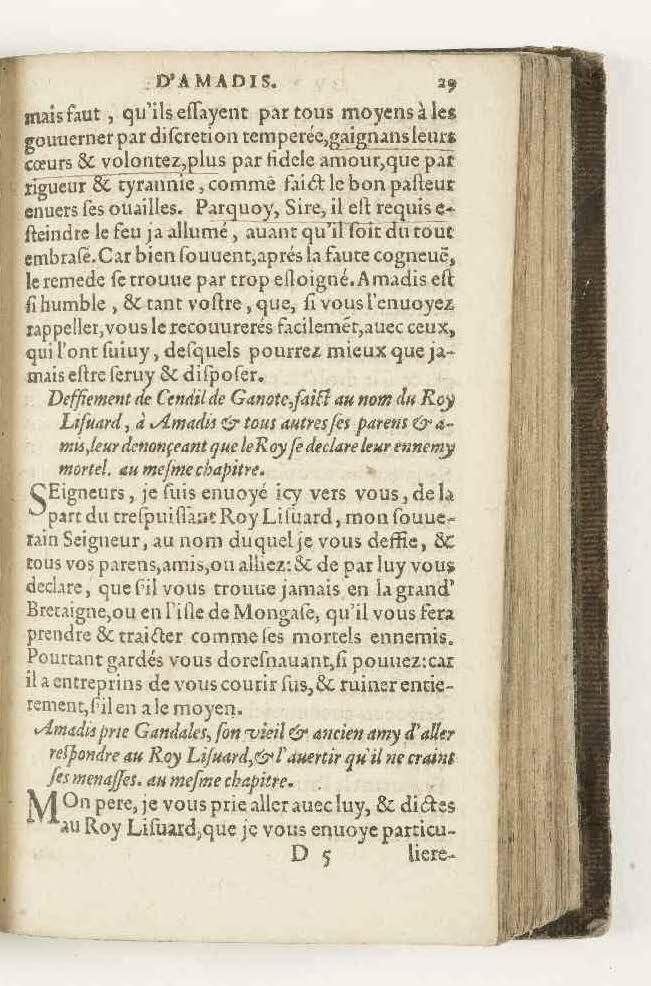 D'AMADIS. 29
mais faut , qu'ils eſſayent par tous moyens à les
gouuerner par diſcretion temperée,gaignans leurs
cœurs & volontez,plus par fidele amour,que par
rigueur & tyrannie , comme faict le bon paſteur
enuers ſes ouailles. Parquoy, Sire, il eſt requis e-
ſteindre le feu ja allumé , auant qu'il ſoit du tout
embraſé. Car bien ſouuent,aprés la faute cogneuë,
le remede ſe trouue par trop eſloigné. Amadis eſt
ſi humble , & tant voſtre , que, ſi vous l'enuoyez
rappeller,vous le recouurerés facilemēt,auec ceux,
qui l'ont ſuiuy , deſquels pourrez mieux que ja-
mais eſtre ſeruy & diſpoſer.
Deffiement de Cendil de Ganote,faict au nom du Roy
Liſuard, à Amadis & tous autres ſes parens & a-
mis,leur denonçeant que le Roy ſe declare leur ennemy
mortel. au meſme chapitre.
SEigneurs , je ſuis enuoyé icy vers vous , de la
part du treſpuiſſant Roy Liſuard , mon ſouue-
rain Seigneur, au nom duquel je vous deffie, &
tous vos parens,amis,ou alliez: & de par luy vous
declare , que ſ'il vous trouue jamais en la grand'
Bretaigne,ou en l'iſle de Mongaſe, qu'il vous fera
prendre & traicter comme ſes mortels ennemis.
Pourtant gardés vous doreſnauant,ſi pouuez: car
il a entreprins de vous courir ſus,& ruiner entie-
rement,ſ'il en a le moyen.
Amadis prie Gandales, ſon vieil & ancien amy d'aller
reſpondre au Roy Liſuard,& l'auertir qu'il ne craint
ſes menaſſes. au meſme chapitre.
MOn pere, je vous prie aller auec luy, & dictes
au Roy Liſuard,que je vous enuoye particu-
D 5 liere-